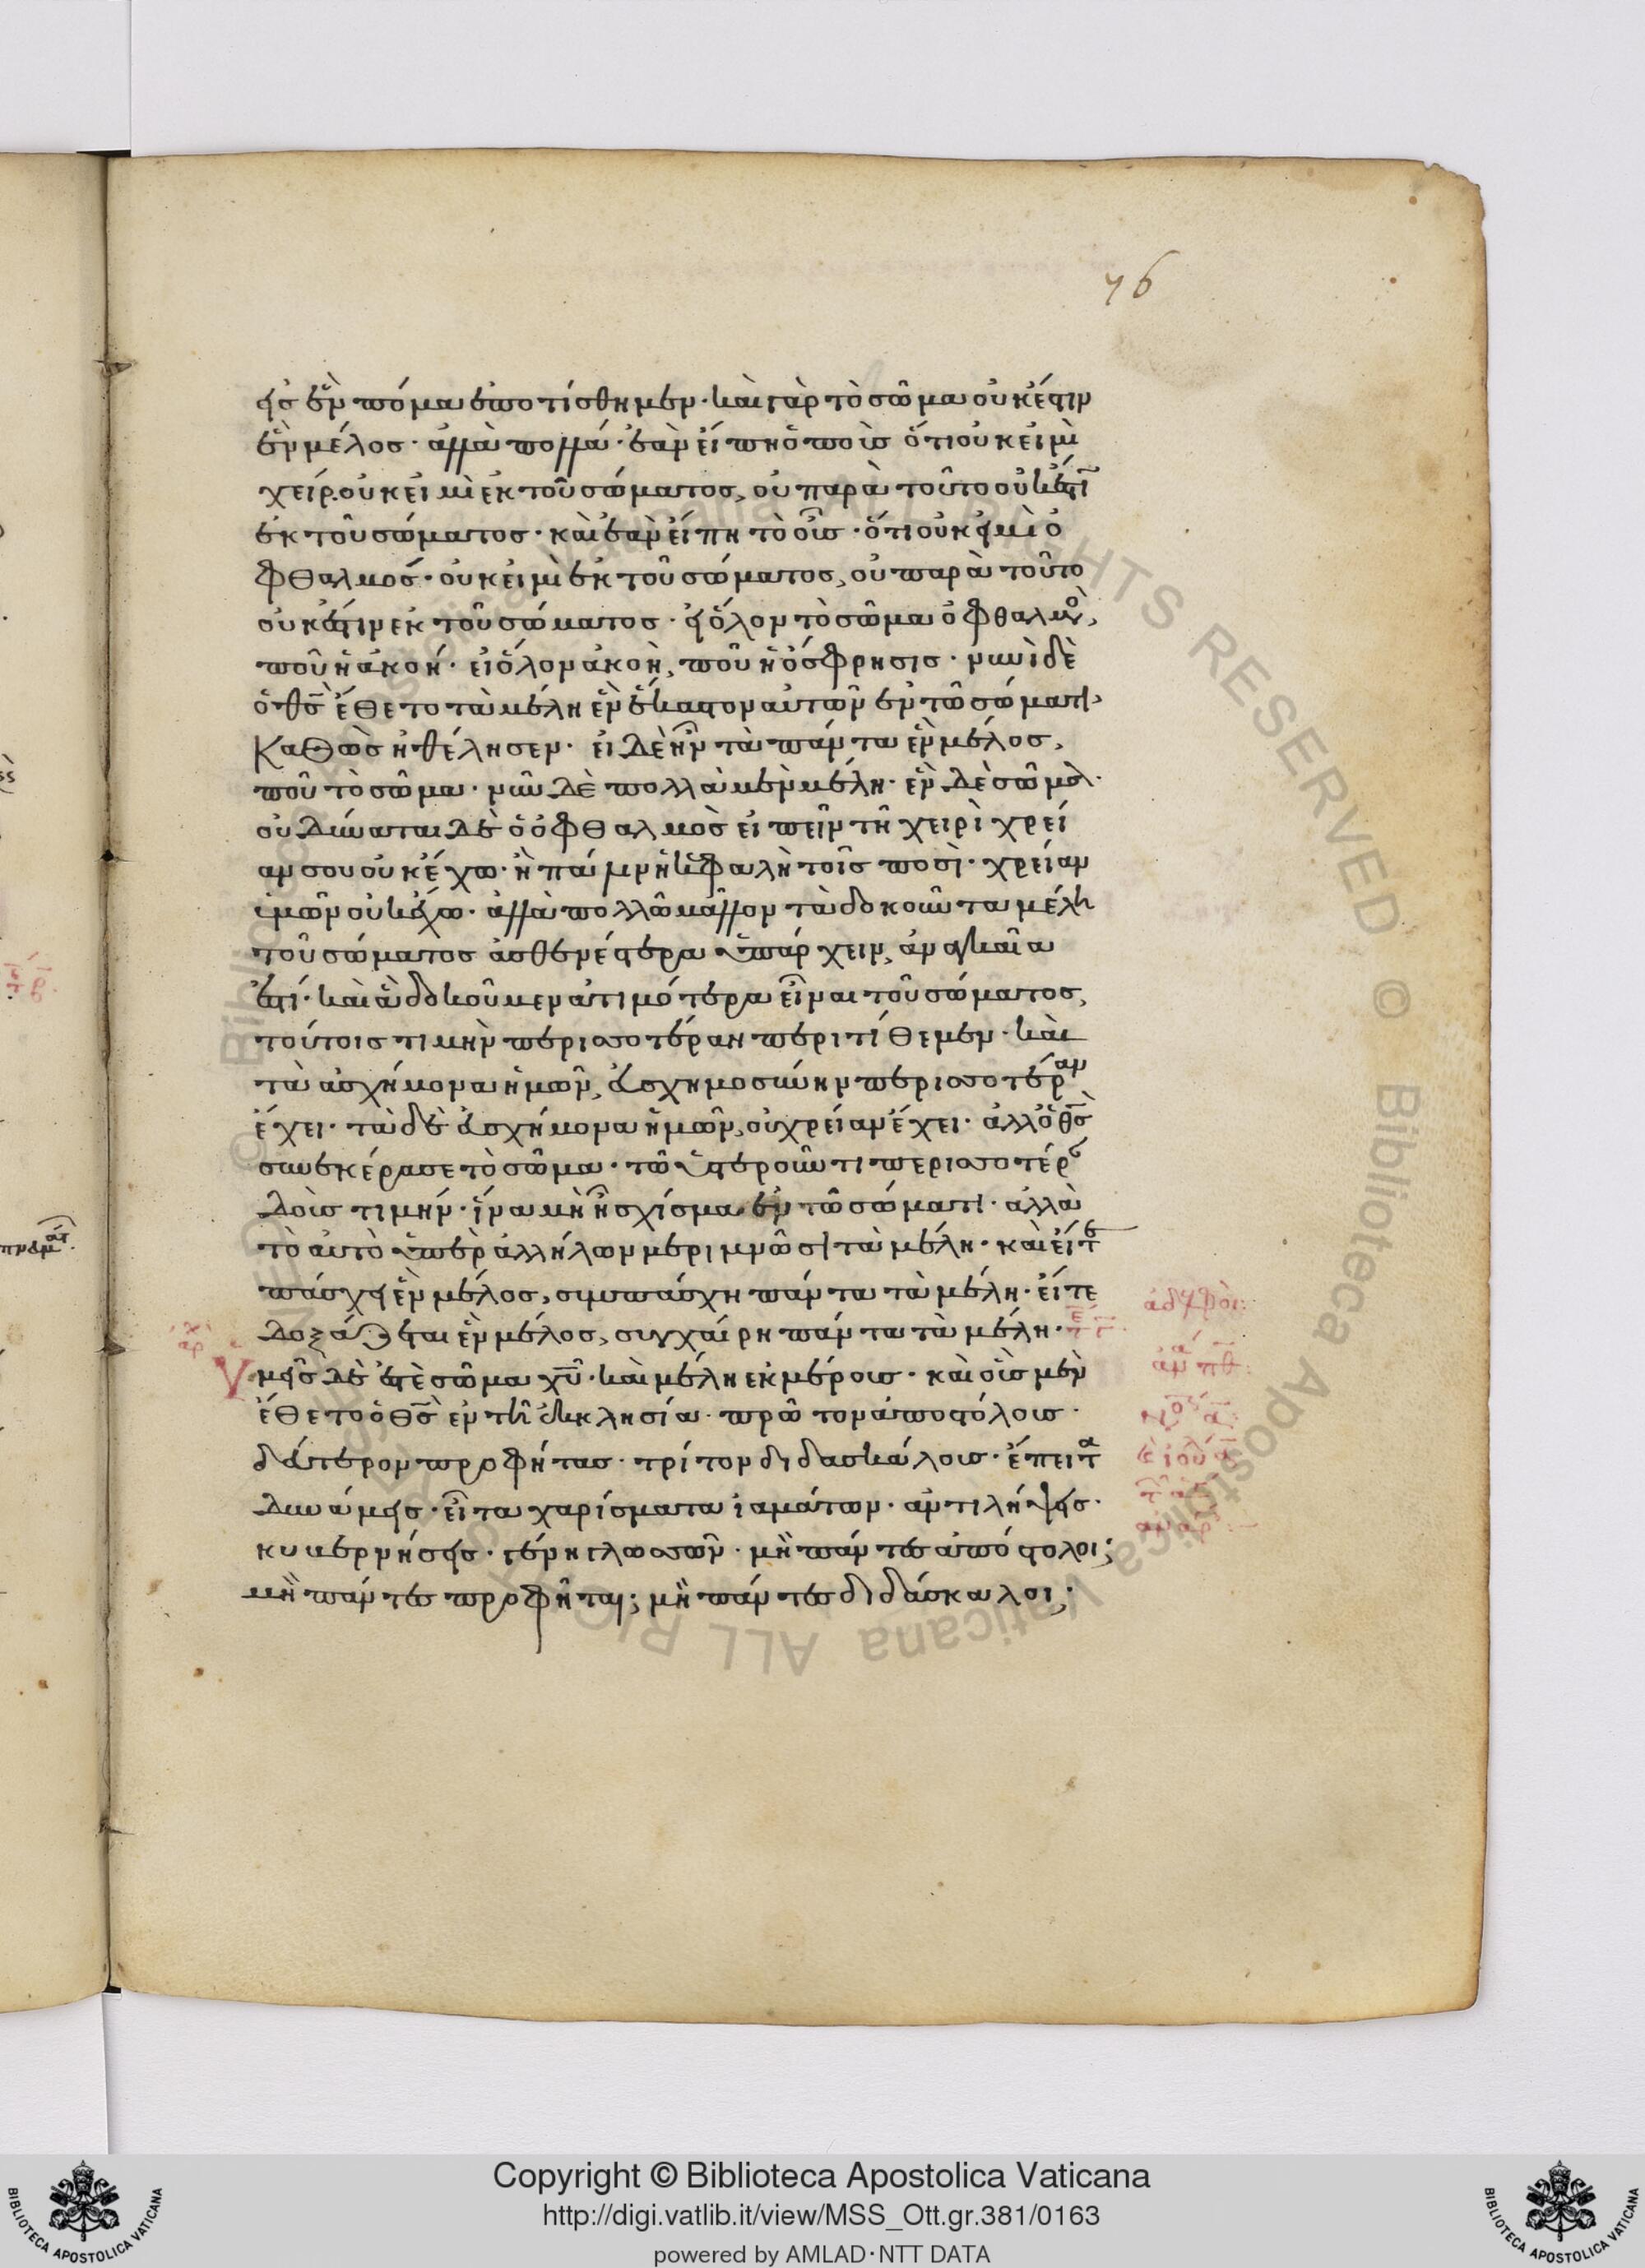 76
εἰς ἓν πόμα ἐποτίσθημεν· καὶ γὰρ τὸ σῶμα οὐκ έστιν
ἓν μέλος· ἀλλὰ πολλά· ἐὰν εἴπη ὁ ποὺς ὅτι οὐκ εἰμὶ
χείρ, οὐκ εἰμὶ ἐκ τοῦ σώματος, οὐ παρὰ τοῦτο οὐκ ἔστι
ἐκ τοῦ σώματος· καὶ ἐὰν εἴπη τὸ οὖς· ὅτι οὐκ εἰμὶ ὀ
φθαλμός· οὐκ εἰμὶ ἐκ τοῦ σώματος, οὐ παρὰ τοῦτο
οὐκ έστιν ἐκ τοῦ σώματος· εἰ ὅλον τὸ σῶμα ὀφθαλμὸς,
ποῦ ἡ ἀκοή· εἰ ὅλον ἀκοὴ, ποῦ ἡ ὄσφρησις· νυνὶ δὲ
ὁ θς̅ ἔθετο τὰ μέλη ἓν ἕκαστον αὐτῶν ἐν τῶ σώματι,
Καθὼς ἠθέλησεν· εἰ δὲ ἦν τὰ πάντα ἓν μέλος,
ποῦ τὸ σῶμα· νῦν δὲ πολλὰ μὲν μέλη· ἓν δὲ σῶμα·
οὐ δύναται δὲ ὁ ὀφθαλμὸς εἰπεῖν τῆ χειρὶ χρεί
αν σου οὐκ έχω· ἢ πάλιν ἡ κεφαλὴ τοῖς ποσὶ· χρείαν
ὑμῶν οὐκ έχω· ἀλλὰ πολλῶ μᾶλλον τὰ δοκοῦντα μέλη
τοῦ σώματος ἀσθενέστερα ὑπάρχειν, ἀναγκαῖα
ἐστί· καὶ ἃ δοκοῦμεν ἀτιμότερα εἶναι τοῦ σώματος,
τούτοις τιμὴν περισσοτέραν περιτίθεμεν· καὶ
τὰ ἀσχήμονα ἡμῶν, εὐσχημοσύνην περισσοτέραν
ἔχει· τὰ δὲ εὐσχήμονα ἡμῶν, οὐ χρείαν έχει· ἀλλ ὁ θς̅
συνεκέρασε τὸ σῶμα· τῶ ὑστεροῦντι περισσοτέρ
δοὺς τιμήν· ἵνα μὴ ἦ σχίσμα ἐν τῶ σώματι· ἀλλὰ
τὸ αὐτὸ ὑπὲρ ἀλλήλων μεριμνῶσι τὰ μέλη· καὶ εἴτε
πάσχει ἓν μέλος, συμπάσχη πάντα τὰ μέλη· εἴτε
δοξάζεται ἓν μέλος, συγχαίρη πάντα τὰ μέλη·
Ὑμεῖς δὲ ἐστὲ σῶμα χυ̅· καὶ μέλη ἐκ μέρους· καὶ οὓς μὲν
ἔθετο ὁ θς̅ ἐν τῆ ἐκκλησία· πρῶτον ἀποστόλους·
δεύτερον προφήτας· τρίτον διδασκάλους· έπειτα
δυνάμεις· εἶτα χαρίσματα ἰαμάτων· ἀντιλήψεις·
κυβερνήσεις· γένη γλωσσῶν· μὴ πάντες ἀπόστολοι;
μὴ πάντες προφῆται; μὴ πάντες διδάσκαλοι;
ἀδελφοὶ:
Copyright © Biblioteca Apostolica Vaticana
http://digi.vatlib.it/view/MSS_Ott.gr.381/0163
powered by AMLAD·NTT DATA